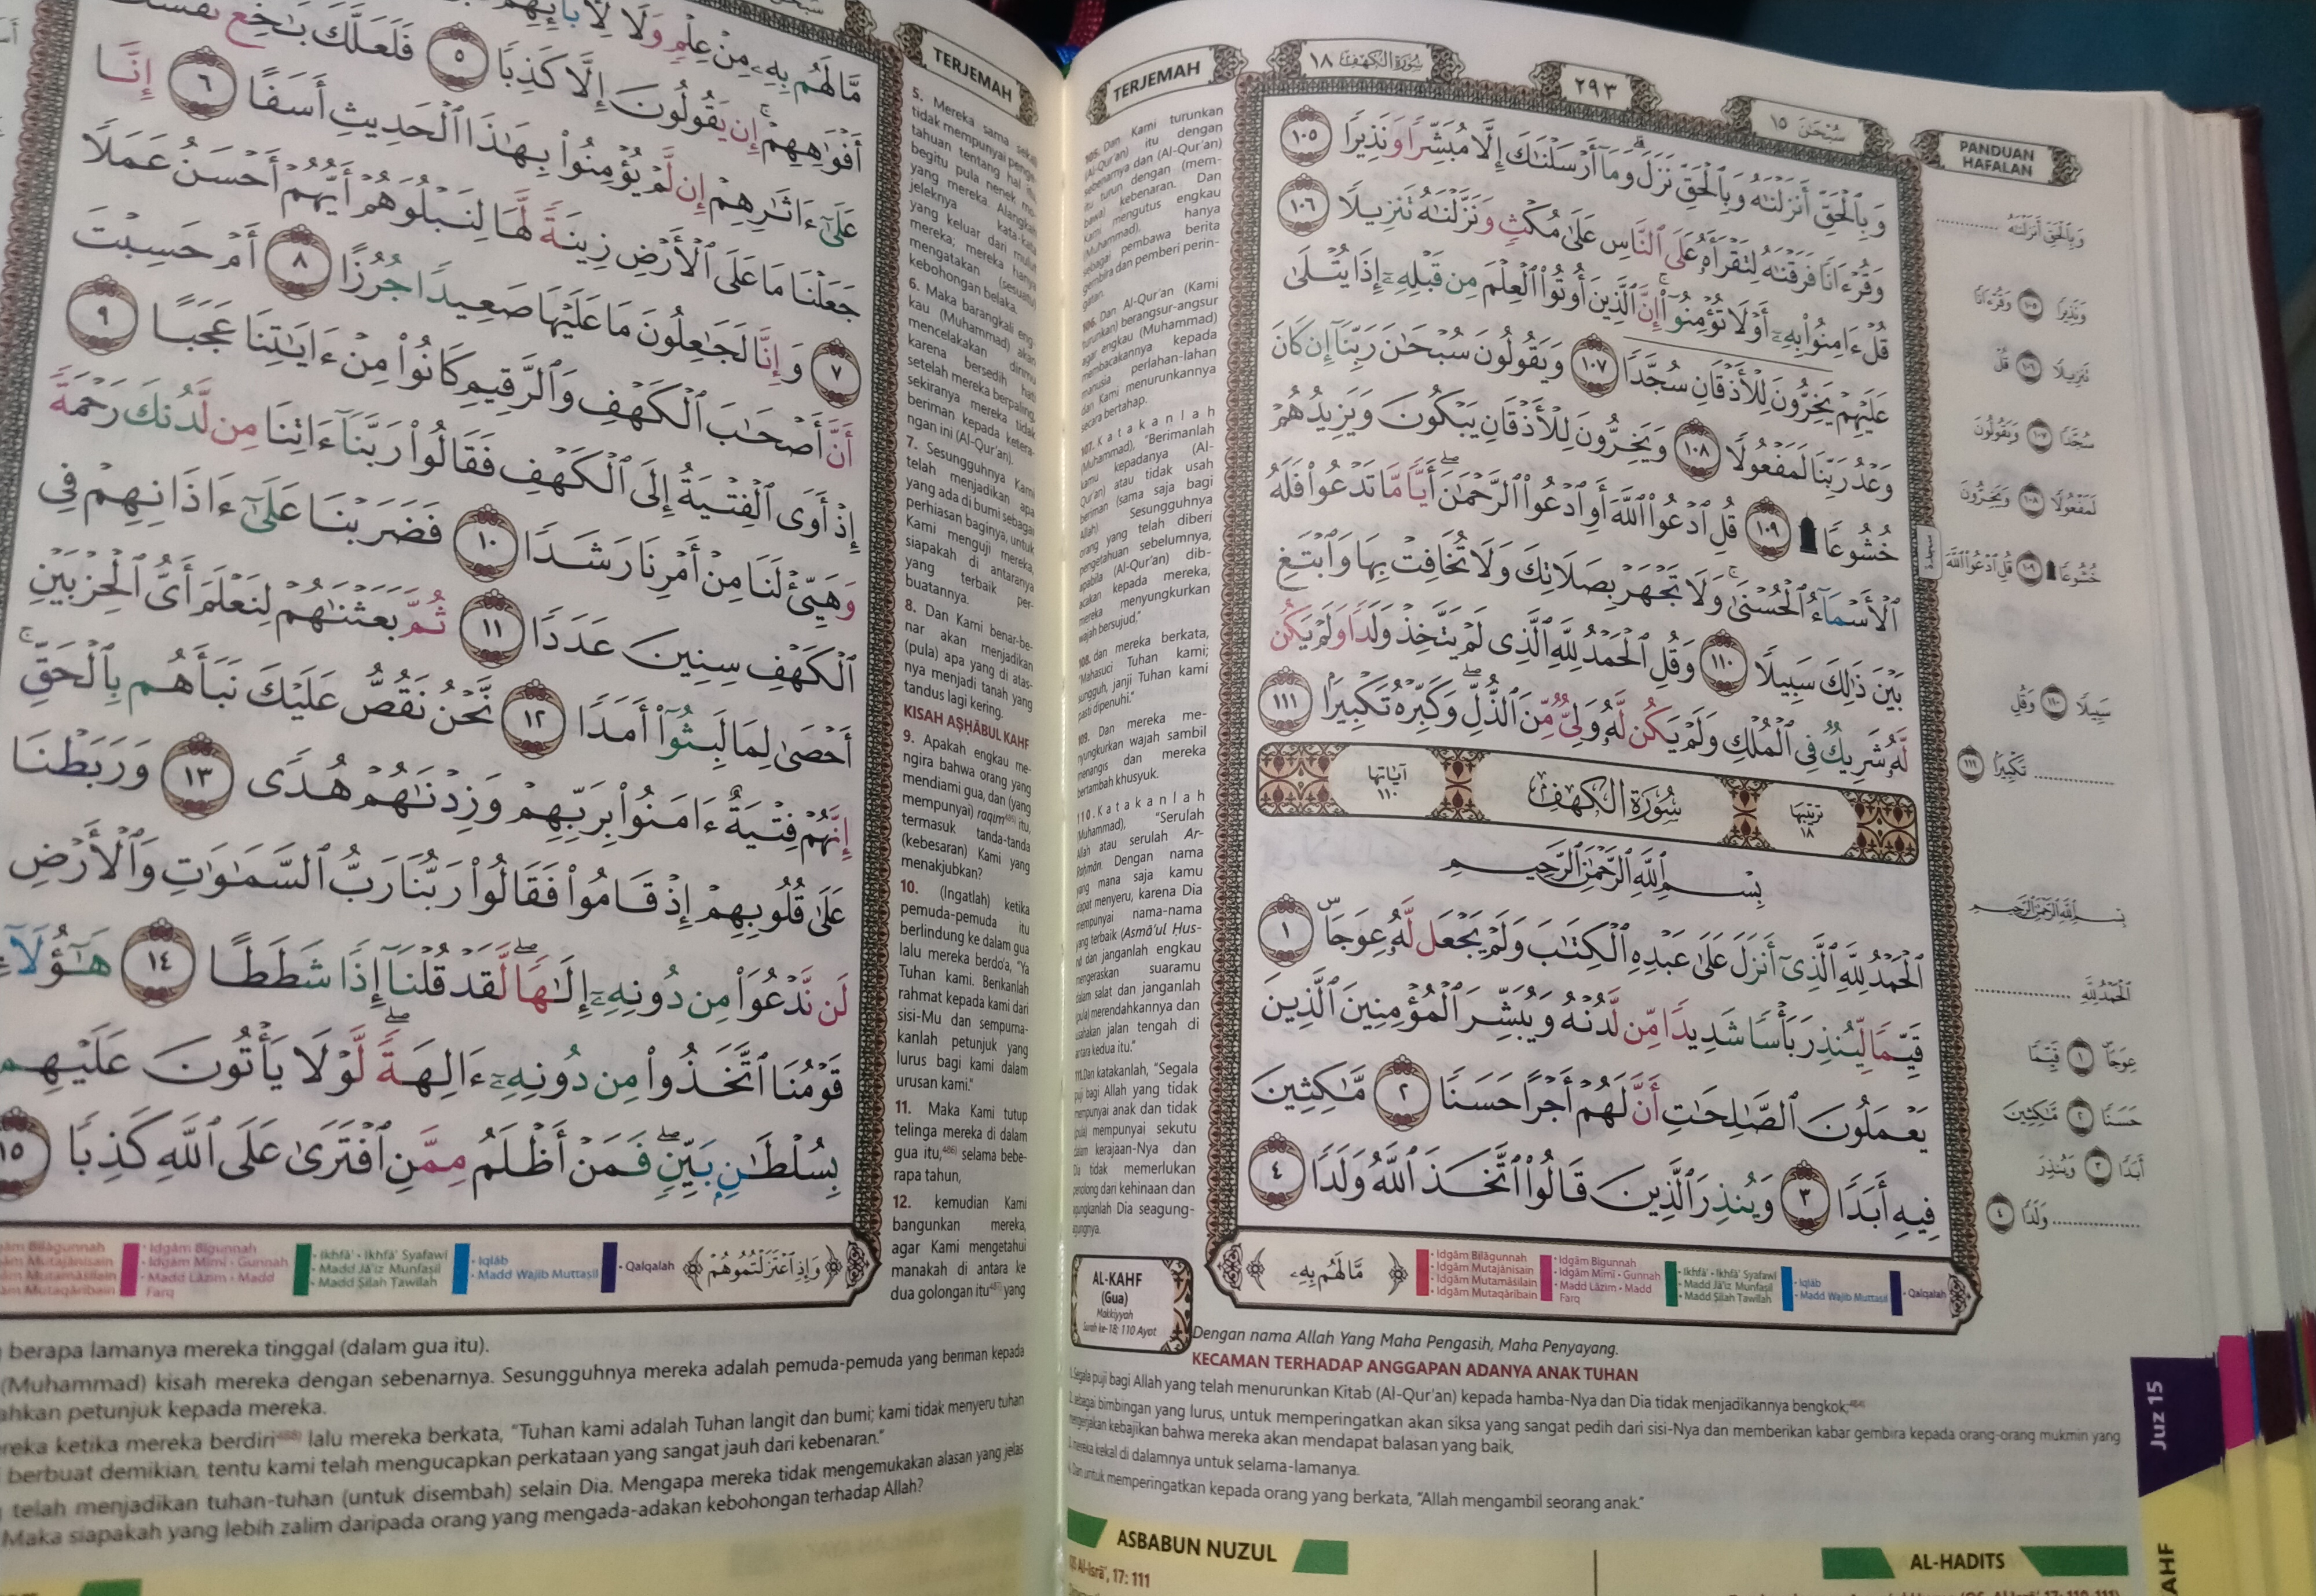 TERJEMAH
سُورَةُ الْكَهْفِ ١٨
٢٩٣
سُبْحٰنَ ١٥
PANDUAN
HAFALAN
وَبِالْحَقِّ أَنْزَلْنٰهُ وَبِالْحَقِّ نَزَلَ ۗ وَمَآ أَرْسَلْنٰكَ إِلَّا مُبَشِّرًا وَنَذِيرًا ١٠٥
وَقُرْءَانًا فَرَقْنٰهُ لِتَقْرَأَهُۥ عَلَى النَّاسِ عَلَىٰ مُكْثٍ وَنَزَّلْنٰهُ تَنْزِيلًا ١٠٦
قُلْ ءَامِنُوا۟ بِهِۦٓ أَوْ لَا تُؤْمِنُوٓا۟ ۚ إِنَّ الَّذِينَ أُوتُوا۟ الْعِلْمَ مِن قَبْلِهِۦٓ إِذَا يُتْلَىٰ
عَلَيْهِمْ يَخِرُّونَ لِلْأَذْقَانِ سُجَّدًا ١٠٧ وَيَقُولُونَ سُبْحٰنَ رَبِّنَآ إِن كَانَ
وَعْدُ رَبِّنَا لَمَفْعُولًا ١٠٨ وَيَخِرُّونَ لِلْأَذْقَانِ يَبْكُونَ وَيَزِيدُهُمْ
خُشُوعًا ۩ ١٠٩ قُلِ ادْعُوا۟ اللَّهَ أَوِ ادْعُوا۟ الرَّحْمٰنَ ۖ أَيًّا مَّا تَدْعُوا۟ فَلَهُ
الْأَسْمَآءُ الْحُسْنَىٰ ۚ وَلَا تَجْهَرْ بِصَلَاتِكَ وَلَا تُخَافِتْ بِهَا وَابْتَغِ
بَيْنَ ذٰلِكَ سَبِيلًا ١١٠ وَقُلِ الْحَمْدُ لِلَّهِ الَّذِى لَمْ يَتَّخِذْ وَلَدًا وَلَمْ يَكُن
لَّهُۥ شَرِيكٌ فِى الْمُلْكِ وَلَمْ يَكُن لَّهُۥ وَلِىٌّ مِّنَ الذُّلِّ ۖ وَكَبِّرْهُ تَكْبِيرًا ١١١
ترتيبها ١٨ سُورَةُ الْكَهْفِ آياتها ١١٠
بِسْمِ اللَّهِ الرَّحْمٰنِ الرَّحِيمِ
الْحَمْدُ لِلَّهِ الَّذِىٓ أَنْزَلَ عَلَىٰ عَبْدِهِ الْكِتٰبَ وَلَمْ يَجْعَل لَّهُۥ عِوَجًا ۜ ١
قَيِّمًا لِّيُنْذِرَ بَأْسًا شَدِيدًا مِّن لَّدُنْهُ وَيُبَشِّرَ الْمُؤْمِنِينَ الَّذِينَ
يَعْمَلُونَ الصّٰلِحٰتِ أَنَّ لَهُمْ أَجْرًا حَسَنًا ٢ مّٰكِثِينَ
فِيهِ أَبَدًا ٣ وَيُنْذِرَ الَّذِينَ قَالُوا۟ اتَّخَذَ اللَّهُ وَلَدًا ٤
مَّا لَهُم بِهِۦ
• Idgām Bilāgunnah
• Idgām Mutajānisain
• Idgām Mutamāṡilain
• Idgām Mutaqāribain
• Idgām Bigunnah
• Idgām Mimi • Gunnah
• Madd Lāzim • Madd
Farq
• Ikhfā' • Ikhfā' Syafawi
• Madd Jā'iz Munfaṣil
• Madd Ṣilah Ṭawilah
• Iqlāb
• Madd Wajib Muttaṣil
• Qalqalah
وَبِالْحَقِّ أَنْزَلْنٰهُ ............
وَنَذِيرًا ١٠٥ وَقُرْءَانًا
تَنْزِيلًا ١٠٦ قُلْ
سُجَّدًا ١٠٧ وَيَقُولُونَ
لَمَفْعُولًا ١٠٨ وَيَخِرُّونَ
خُشُوعًا ۩ ١٠٩ قُلِ ادْعُوا۟ اللَّهَ
سَبِيلًا ١١٠ وَقُلِ
............ تَكْبِيرًا ١١١
بِسْمِ اللَّهِ الرَّحْمٰنِ الرَّحِيمِ
الْحَمْدُ لِلَّهِ ............
عِوَجًا ١ قَيِّمًا
حَسَنًا ٢ مّٰكِثِينَ
أَبَدًا ٣ وَيُنْذِرَ
............ وَلَدًا ٤
105. Dan Kami turunkan
(Al-Qur'an) itu dengan
sebenarnya dan (Al-Qur'an)
itu turun dengan (mem-
bawa) kebenaran. Dan
Kami mengutus engkau
(Muhammad), hanya
sebagai pembawa berita
gembira dan pemberi perin-
gatan.
106. Dan Al-Qur'an (Kami
turunkan) berangsur-angsur
agar engkau (Muhammad)
membacakannya kepada
manusia perlahan-lahan
dan Kami menurunkannya
secara bertahap.
107. Katakanlah
(Muhammad), "Berimanlah
kamu kepadanya (Al-
Qur'an) atau tidak usah
beriman (sama saja bagi
Allah). Sesungguhnya
orang yang telah diberi
pengetahuan sebelumnya,
apabila (Al-Qur'an) dib-
acakan kepada mereka,
mereka menyungkurkan
wajah bersujud,"
108. dan mereka berkata,
"Mahasuci Tuhan kami;
sungguh, janji Tuhan kami
pasti dipenuhi."
109. Dan mereka me-
nyungkurkan wajah sambil
menangis dan mereka
bertambah khusyuk.
110. Katakanlah
(Muhammad), "Serulah
Allah atau serulah Ar-
Rahmān. Dengan nama
yang mana saja kamu
dapat menyeru, karena Dia
mempunyai nama-nama
yang terbaik (Asmā'ul Ḥus-
nā) dan janganlah engkau
mengeraskan suaramu
dalam salat dan janganlah
(pula) merendahkannya dan
usahakan jalan tengah di
antara kedua itu."
111. Dan katakanlah, "Segala
puji bagi Allah yang tidak
mempunyai anak dan tidak
(pula) mempunyai sekutu
dalam kerajaan-Nya dan
Dia tidak memerlukan
penolong dari kehinaan dan
agungkanlah Dia seagung-
agungnya.
AL-KAHF
(Gua)
Makkiyyah
Surah ke-18; 110 Ayat
Dengan nama Allah Yang Maha Pengasih, Maha Penyayang.
KECAMAN TERHADAP ANGGAPAN ADANYA ANAK TUHAN
1. Segala puji bagi Allah yang telah menurunkan Kitab (Al-Qur'an) kepada hamba-Nya dan Dia tidak menjadikannya bengkok;
2. sebagai bimbingan yang lurus, untuk memperingatkan akan siksa yang sangat pedih dari sisi-Nya dan memberikan kabar gembira kepada orang-orang mukmin yang
mengerjakan kebajikan bahwa mereka akan mendapat balasan yang baik,
3. mereka kekal di dalamnya untuk selama-lamanya.
4. Dan untuk memperingatkan kepada orang yang berkata, "Allah mengambil seorang anak."
ASBABUN NUZUL
QS Al-Isrā', 17: 111
AL-HADITS
Juz 15
AHF
مَّا لَهُم بِهِۦ مِنْ عِلْمٍ وَلَا لِأٰبَآئِهِمْ
أَفْوٰهِهِمْ ۚ إِن يَقُولُونَ إِلَّا كَذِبًا ٥ فَلَعَلَّكَ بٰخِعٌ نَّفْسَكَ
عَلَىٰٓ ءَاثٰرِهِمْ إِن لَّمْ يُؤْمِنُوا۟ بِهٰذَا الْحَدِيثِ أَسَفًا ٦ إِنَّا
جَعَلْنَا مَا عَلَى الْأَرْضِ زِينَةً لَّهَا لِنَبْلُوَهُمْ أَيُّهُمْ أَحْسَنُ عَمَلًا
٧ وَإِنَّا لَجٰعِلُونَ مَا عَلَيْهَا صَعِيدًا جُرُزًا ٨ أَمْ حَسِبْتَ
أَنَّ أَصْحٰبَ الْكَهْفِ وَالرَّقِيمِ كَانُوا۟ مِنْ ءَايٰتِنَا عَجَبًا ٩
إِذْ أَوَى الْفِتْيَةُ إِلَى الْكَهْفِ فَقَالُوا۟ رَبَّنَآ ءَاتِنَا مِن لَّدُنكَ رَحْمَةً
وَهَيِّئْ لَنَا مِنْ أَمْرِنَا رَشَدًا ١٠ فَضَرَبْنَا عَلَىٰٓ ءَاذَانِهِمْ فِى
الْكَهْفِ سِنِينَ عَدَدًا ١١ ثُمَّ بَعَثْنٰهُمْ لِنَعْلَمَ أَىُّ الْحِزْبَيْنِ
أَحْصَىٰ لِمَا لَبِثُوٓا۟ أَمَدًا ١٢ نَّحْنُ نَقُصُّ عَلَيْكَ نَبَأَهُم بِالْحَقِّ ۚ
إِنَّهُمْ فِتْيَةٌ ءَامَنُوا۟ بِرَبِّهِمْ وَزِدْنٰهُمْ هُدًى ١٣ وَرَبَطْنَا
عَلَىٰ قُلُوبِهِمْ إِذْ قَامُوا۟ فَقَالُوا۟ رَبُّنَا رَبُّ السَّمٰوٰتِ وَالْأَرْضِ
لَن نَّدْعُوَا۟ مِن دُونِهِۦٓ إِلٰهًا ۖ لَّقَدْ قُلْنَآ إِذًا شَطَطًا ١٤ هٰٓؤُلَآءِ
قَوْمُنَا اتَّخَذُوا۟ مِن دُونِهِۦٓ ءَالِهَةً ۖ لَّوْلَا يَأْتُونَ عَلَيْهِم
بِسُلْطٰنٍ بَيِّنٍ ۖ فَمَنْ أَظْلَمُ مِمَّنِ افْتَرَىٰ عَلَى اللَّهِ كَذِبًا ١٥
وَإِذِ اعْتَزَلْتُمُوهُمْ
• Idgām Bigunnah
• Idgām Mimi • Gunnah
• Madd Lāzim • Madd
Farq
• Ikhfā' • Ikhfā' Syafawi
• Madd Jā'iz Munfaṣil
• Madd Ṣilah Ṭawilah
• Iqlāb
• Madd Wajib Muttaṣil
• Qalqalah
TERJEMAH
5. Mereka sama sekali
tidak mempunyai penge-
tahuan tentang hal itu,
begitu pula nenek mo-
yang mereka. Alangkah
jeleknya kata-kata
yang keluar dari mulut
mereka; mereka hanya
mengatakan (sesuatu)
kebohongan belaka.
6. Maka barangkali eng-
kau (Muhammad) akan
mencelakakan dirimu
karena bersedih hati
setelah mereka berpaling,
sekiranya mereka tidak
beriman kepada ketera-
ngan ini (Al-Qur'an).
7. Sesungguhnya Kami
telah menjadikan apa
yang ada di bumi sebagai
perhiasan baginya, untuk
Kami menguji mereka,
siapakah di antaranya
yang terbaik per-
buatannya.
8. Dan Kami benar-be-
nar akan menjadikan
(pula) apa yang di atas-
nya menjadi tanah yang
tandus lagi kering.
KISAH AṢḤĀBUL KAHF
9. Apakah engkau me-
ngira bahwa orang yang
mendiami gua, dan (yang
mempunyai) raqim itu,
termasuk tanda-tanda
(kebesaran) Kami yang
menakjubkan?
10. (Ingatlah) ketika
pemuda-pemuda itu
berlindung ke dalam gua
lalu mereka berdo'a, "Ya
Tuhan kami. Berikanlah
rahmat kepada kami dari
sisi-Mu dan sempurna-
kanlah petunjuk yang
lurus bagi kami dalam
urusan kami."
11. Maka Kami tutup
telinga mereka di dalam
gua itu,⁴⁸⁶⁾ selama bebe-
rapa tahun,
12. kemudian Kami
bangunkan mereka,
agar Kami mengetahui
manakah di antara ke
dua golongan itu⁴⁸⁷⁾ yang
berapa lamanya mereka tinggal (dalam gua itu).
(Muhammad) kisah mereka dengan sebenarnya. Sesungguhnya mereka adalah pemuda-pemuda yang beriman kepada
ahkan petunjuk kepada mereka.
reka ketika mereka berdiri⁴⁸⁸⁾ lalu mereka berkata, "Tuhan kami adalah Tuhan langit dan bumi; kami tidak menyeru tuhan
berbuat demikian, tentu kami telah mengucapkan perkataan yang sangat jauh dari kebenaran."
telah menjadikan tuhan-tuhan (untuk disembah) selain Dia. Mengapa mereka tidak mengemukakan alasan yang jelas
Maka siapakah yang lebih zalim daripada orang yang mengada-adakan kebohongan terhadap Allah?